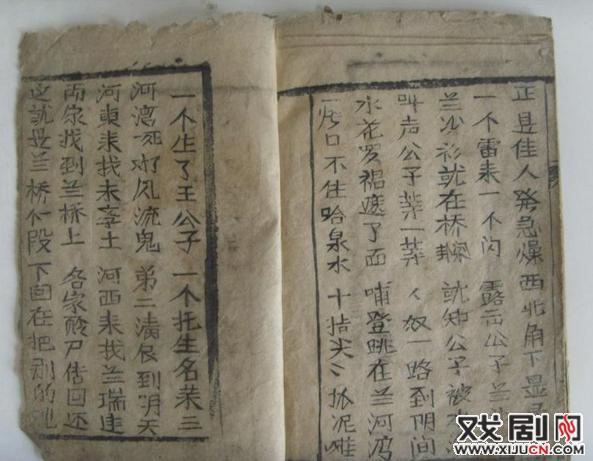 正是佳人発急燥西北角下显
一个雷来一个闪 露出公子兰
兰沙衫就在桥 就知公子被水
叫声公子等一等 奴一路到阴间
水花罗裙遮了面 哺登跳在兰河湾
口不住哈泉水 十指尖〻抓泥
一个生了王公子 一个托生名英三
河湾死吥风流鬼 弟二清辰到明天
河東来找李土 河西来找兰瑞连
两家找到兰桥上 各家殓尸传回还
这就是兰桥个一段 下回在把别的
戏剧网
www.XIJUCN.com